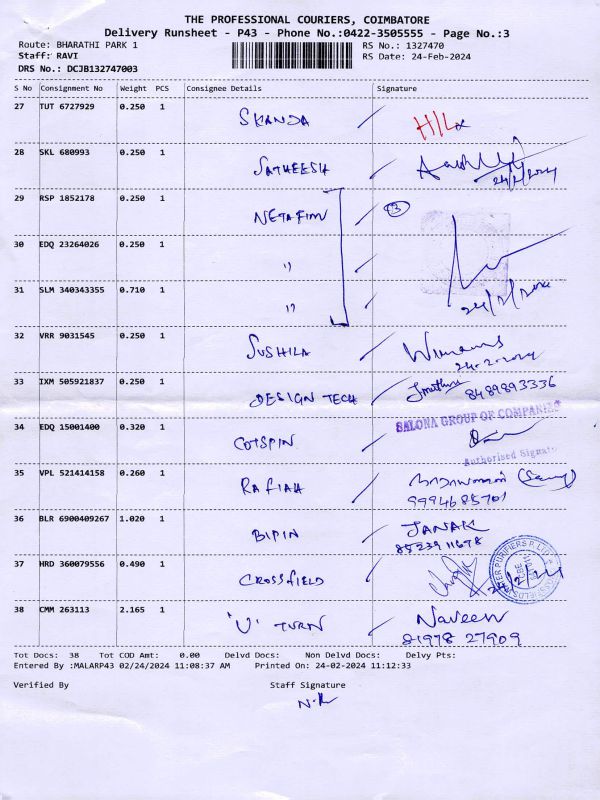 THE PROFESSIONAL COURIERS, COIMBATORE
Delivery Runsheet - P43 - Phone No.:0422-3505555 - Page No.:3
Route: BHARATHI PARK 1 RS No.: 1327470
Staff: RAVI RS Date: 24-Feb-2024
DRS No.: DCJB132747003
S No Consignment No Weight PCS Consignee Details Signature
27 TUT 6727929 0.250 1 SKANDA
28 SKL 680993 0.250 1 SATHEESH
24/2/2024
29 RSP 1852178 0.250 1 NETAFIM 3
30 EDQ 23264026 0.250 1 "
31 SLM 340343355 0.710 1 "
32 VRR 9031545 0.250 1 SUSHILA
24-2-2024
33 IXM 505921837 0.250 1 DESIGN TECH 8489893336
34 EDQ 15001400 0.320 1 COTSPIN SALONA GROUP OF COMPANIES
Authorised Signatory
35 VPL 521414158 0.260 1 RAFIAH
9994685701
36 BLR 6900409267 1.020 1 BIPIN JANAK
8523911678
37 HRD 360079556 0.490 1 CROSSFIELD
38 CMM 263113 2.165 1 'U' TURN Naveen
81978 27909
Tot Docs: 38 Tot COD Amt: 0.00 Delvd Docs: Non Delvd Docs: Delvy Pts:
Entered By :MALARP43 02/24/2024 11:08:37 AM Printed On: 24-02-2024 11:12:33
Verified By Staff Signature